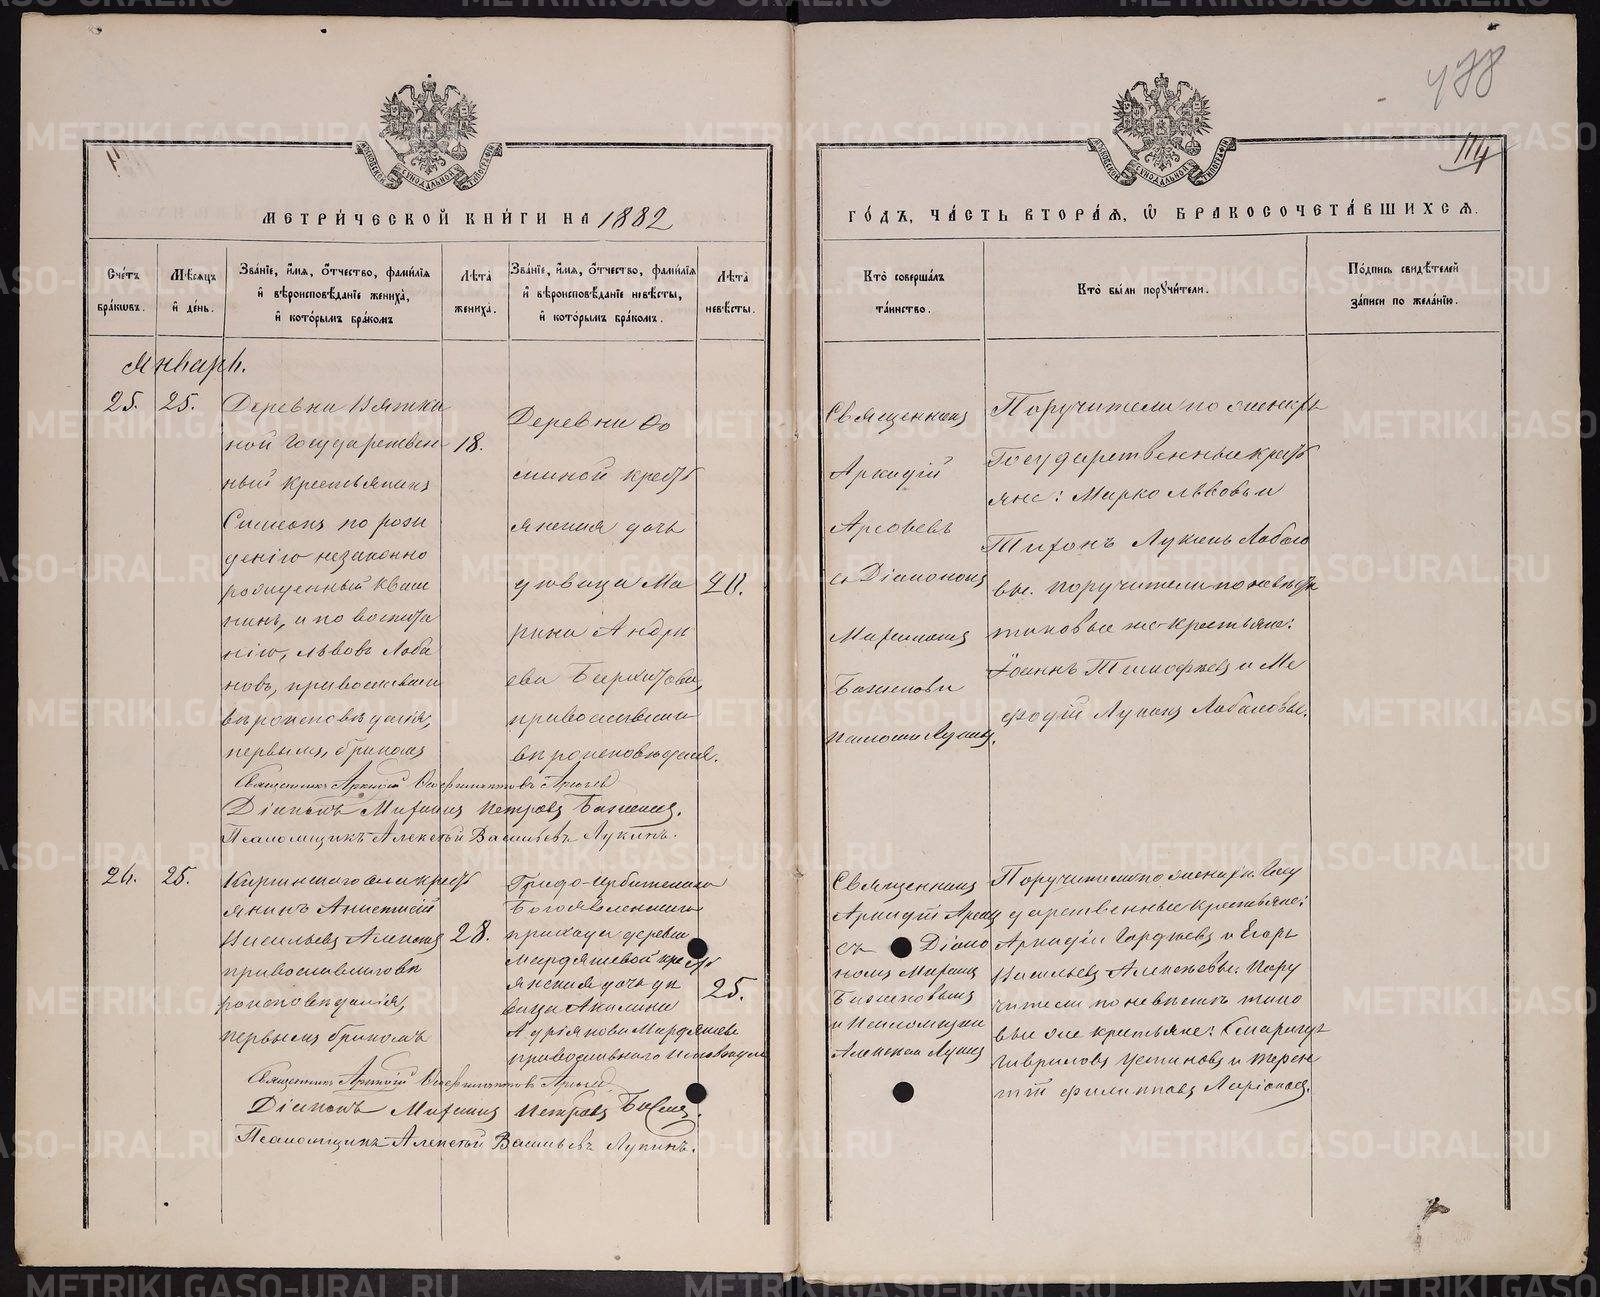 478
114
МЕТРИ́ЧЕСКОЙ КНИ́ГИ НА 1882
ГО́ДЪ, ЧА́СТЬ ВТОРА́Я, Ѡ БРАКОСОЧЕТА́ВШИХСЯ.
Сче́тъ бра́ковъ.
Мѣ́сяцъ и де́нь.
Зва́нїе, и́мя, о́тчество, фами́лїя
и вѣроисповѣ́данїе жениха̀,
и кото́рымъ бра́комъ
Лѣ́та жениха̀.
Зва́нїе, и́мя, о́тчество, фами́лїя
и вѣроисповѣ́данїе невѣ́сты,
и кото́рымъ бра́комъ.
Лѣ́та невѣ́сты.
Кто̀ соверша́лъ та́инство.
Кто̀ бы́ли пору́чители.
По́дпись свидѣ́телей
за́писи по жела́нїю.
Январь.
25. 25.
Деревни Вятки
ной государствен
ный крестьянинъ
Симеонъ по рож
денію незаконно
рожденный Кваш
нинъ, и по воспита
нію, Львовъ Лоба
новъ, православнаго
вѣроисповѣданія,
первымъ бракомъ
18.
Деревни Ѳо
миной кресть
янская дочь
дѣвица Ма
рина Андре
ева
православнаго
вѣроисповѣданія.
Священникъ
Аркадій
Арефьевъ
съ Діакономъ
Михаиломъ
Баженовы
Псаломщ Лукинъ.
Поручители по женихѣ
Государственные кресть
яне: Марко Львовъ и
Тихонъ Лукинъ Лобано
вы. поручители по невѣстѣ
таковые же крестьяне:
Іоаннъ Тимофѣевъ и Ме
фодій Лукинъ Лобановы.
Священникъ Аркадій Арефьев
Діаконъ Михаилъ Петровъ Баженовъ.
Псаломщикъ Алексѣй Васильевъ Лукинъ.
26. 25.
Киргинскаго села кресть
янинъ Анастасій
Васильевъ Алексѣев
православнаго вѣ
роисповѣданія,
первымъ бракомъ
28.
Градо-Ирбитскаго
Богоявленскаго
прихода деревни
Мардяшевой кресть
янская дочь дѣ
вица Акилина
Мардяшева
православнаго исповѣдан
25.
Священникъ
Аркадій Ареф
съ Діако
номъ Михаил
Баженовымъ
и Псаломщик
Алексѣем Лукин
Поручители по женихѣ Госу
дарственные крестьяне:
Аркадій Гордѣевъ и Егоръ
Васильевъ Алексѣевы. Пору
чители по невѣстѣ тако
вые же крестьяне:
Гавриловъ Устиновъ и Терен
тій Филипповъ Ларіоновъ.
Священникъ Аркадій Арефьев
Діаконъ Михаилъ Петровъ Баженовъ.
Псаломщикъ Алексѣй Васильевъ Лукинъ.
METRIKI.GASO-URAL.RU